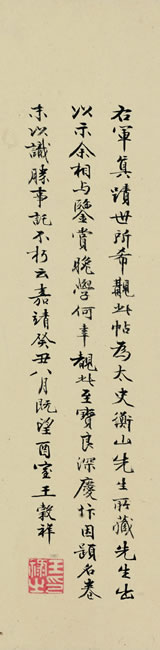 右軍真蹟世所希覯此帖為太史衡山先生所藏先生出
以示余相与鑒賞晚學何幸覯此至寶良深慶忭因題名卷
末以識勝事託不朽云嘉靖癸丑八月既望酉室王穀祥